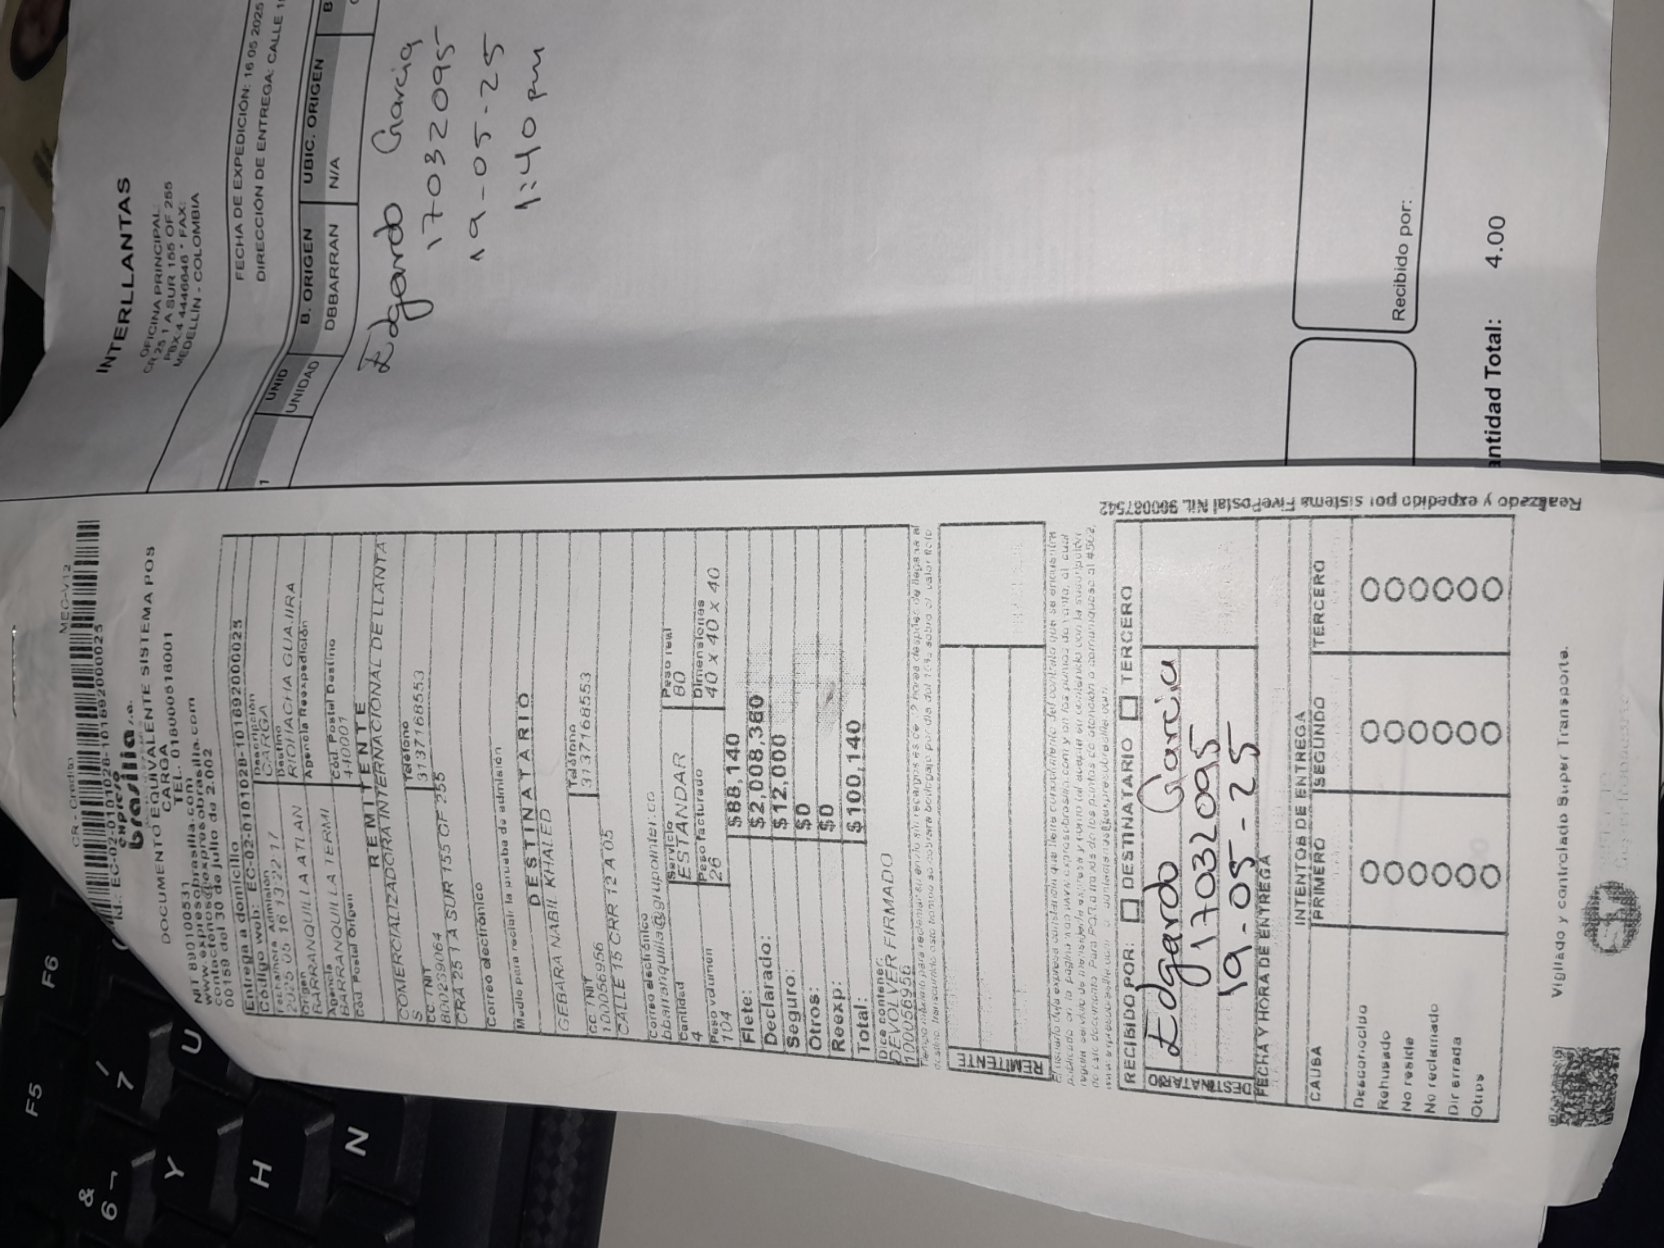 INTERLLANTAS
OFICINA PRINCIPAL:
CR 25 1 A SUR 155 OF 255
PBX:4 4446646 * FAX:
MEDELLIN - COLOMBIA
FECHA DE EXPEDICIÓN: 16 05 2025
DIRECCIÓN DE ENTREGA: CALLE
UNID B. ORIGEN UBIC. ORIGEN
UNIDAD DBBARRAN N/A
1
Edgardo Garcia
17032095
19-05-25
1:40 pm
Recibido por:
antidad Total: 4.00
CR - Credito MEC-V12
Id.: EC-02-0101028-101692000025
expreso
brasilia s.a.
DOCUMENTO EQUIVALENTE SISTEMA POS
CARGA
TEL.: 018000518001
NIT 890100531
www.expresobrasilia.com
contactenos@expresobrasilia.com
00159 del 30 de julio de 2.002
Entrega a domicilio
Código web: EC-02-0101028-1016920000025
Fecha/hora Admisión Descripción
2025 05 16 13:22:17 CARGA
Origen Destino
BARRANQUILLA ATLAN RIOHACHA GUAJIRA
Agencia Agencia Reexpedición
BARRANQUILLA TERMI
Cód Postal Origen Cód Postal Destino
440001
REMITENTE
COMERCIALIZADORA INTERNACIONAL DE LLANTA
S
CC / NIT Teléfono
800239064 3137168553
CRA 25 1 A SUR 155 OF 255
Correo electrónico
Medio para recibir la prueba de admisión
DESTINATARIO
GEBARA NABIL KHALED
CC / NIT Teléfono
100056956 3137168553
CALLE 15 CRR 12 A 05
Correo electrónico
bbarranquilla@grupointer.co
Cantidad Servicio Peso real
4 ESTANDAR 80
Peso volumen Peso facturado Dimensiones
104 26 40 x 40 x 40
Flete: $88,140
Declarado: $2,008,380
Seguro: $12,000
Otros: $0
Reexp: $0
Total: $100,140
Dice contener:
DEVOLVER FIRMADO
100056956
REMITENTE
RECIBIDO POR: DESTINATARIO TERCERO
DESTINATARIO
Edgardo Garcia
17032095
19-05-25
FECHA Y HORA DE ENTREGA
INTENTOS DE ENTREGA
CAUSA PRIMERO SEGUNDO TERCERO
Desconocido
Rehusado
No reside
No reclamado
Dir errada
Otros
Realizado y expedido por sistema FivePostal Nit. 900087542
Vigilado y controlado Super Transporte.
F5
F6
&
6 ¬
/
7
(
Y
U
H
N